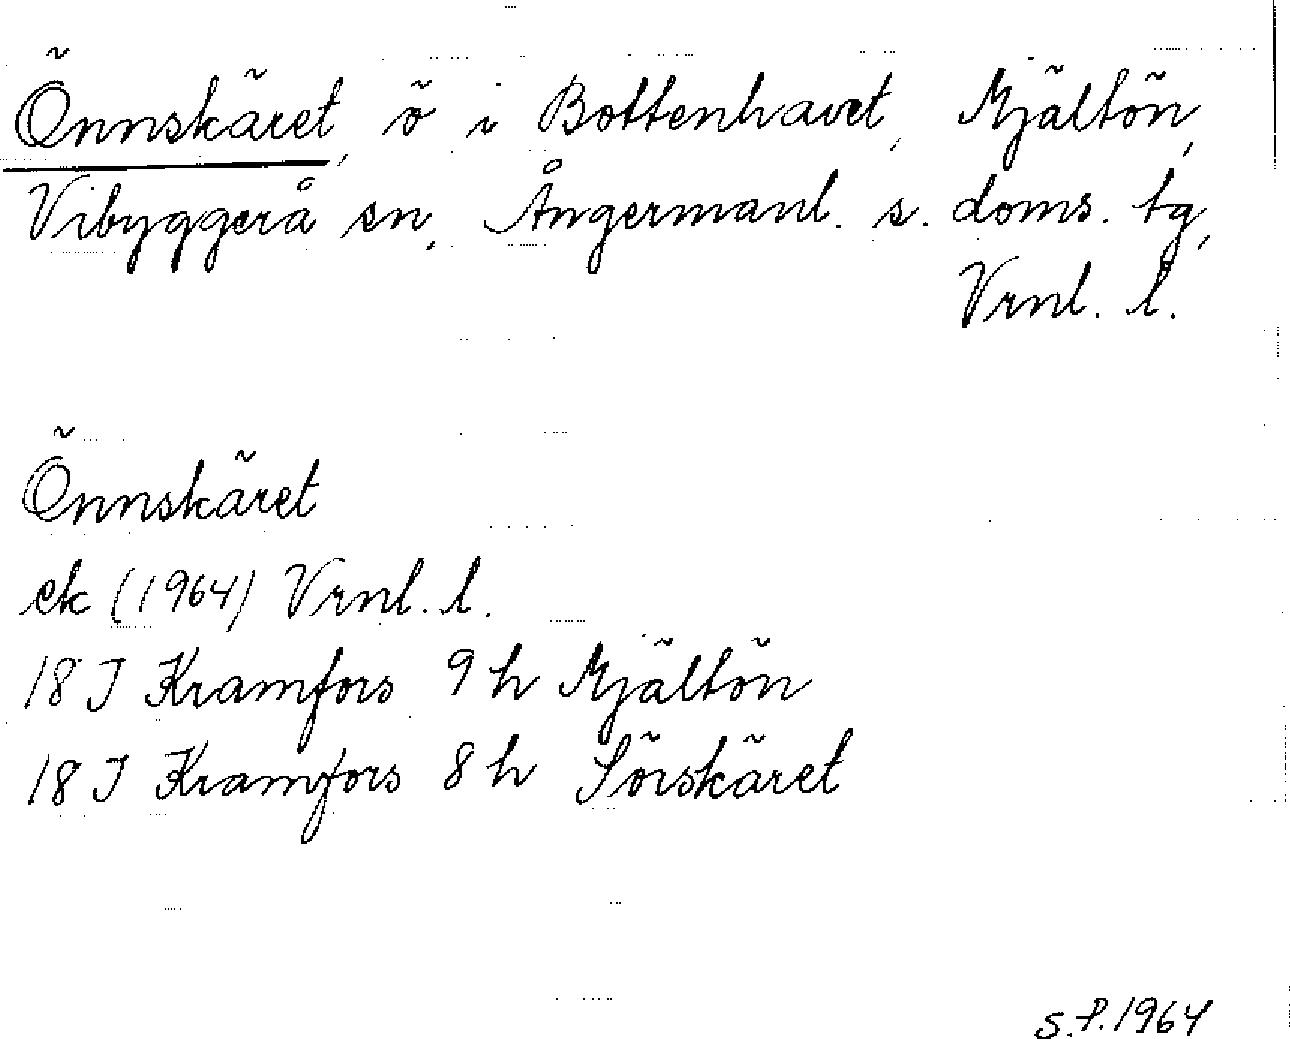 Önnskäret, ö i Bottenhavet, Mjältön,
Vibyggerå sn, Ångermanl. s. doms. tg,
Vrnl. l.
Önnskäret
ek (1964) Vrnl. l.
18 J Kramfors 9 h Mjältön
18 J Kramfors 8 h Sörskäret
S.P. 1964